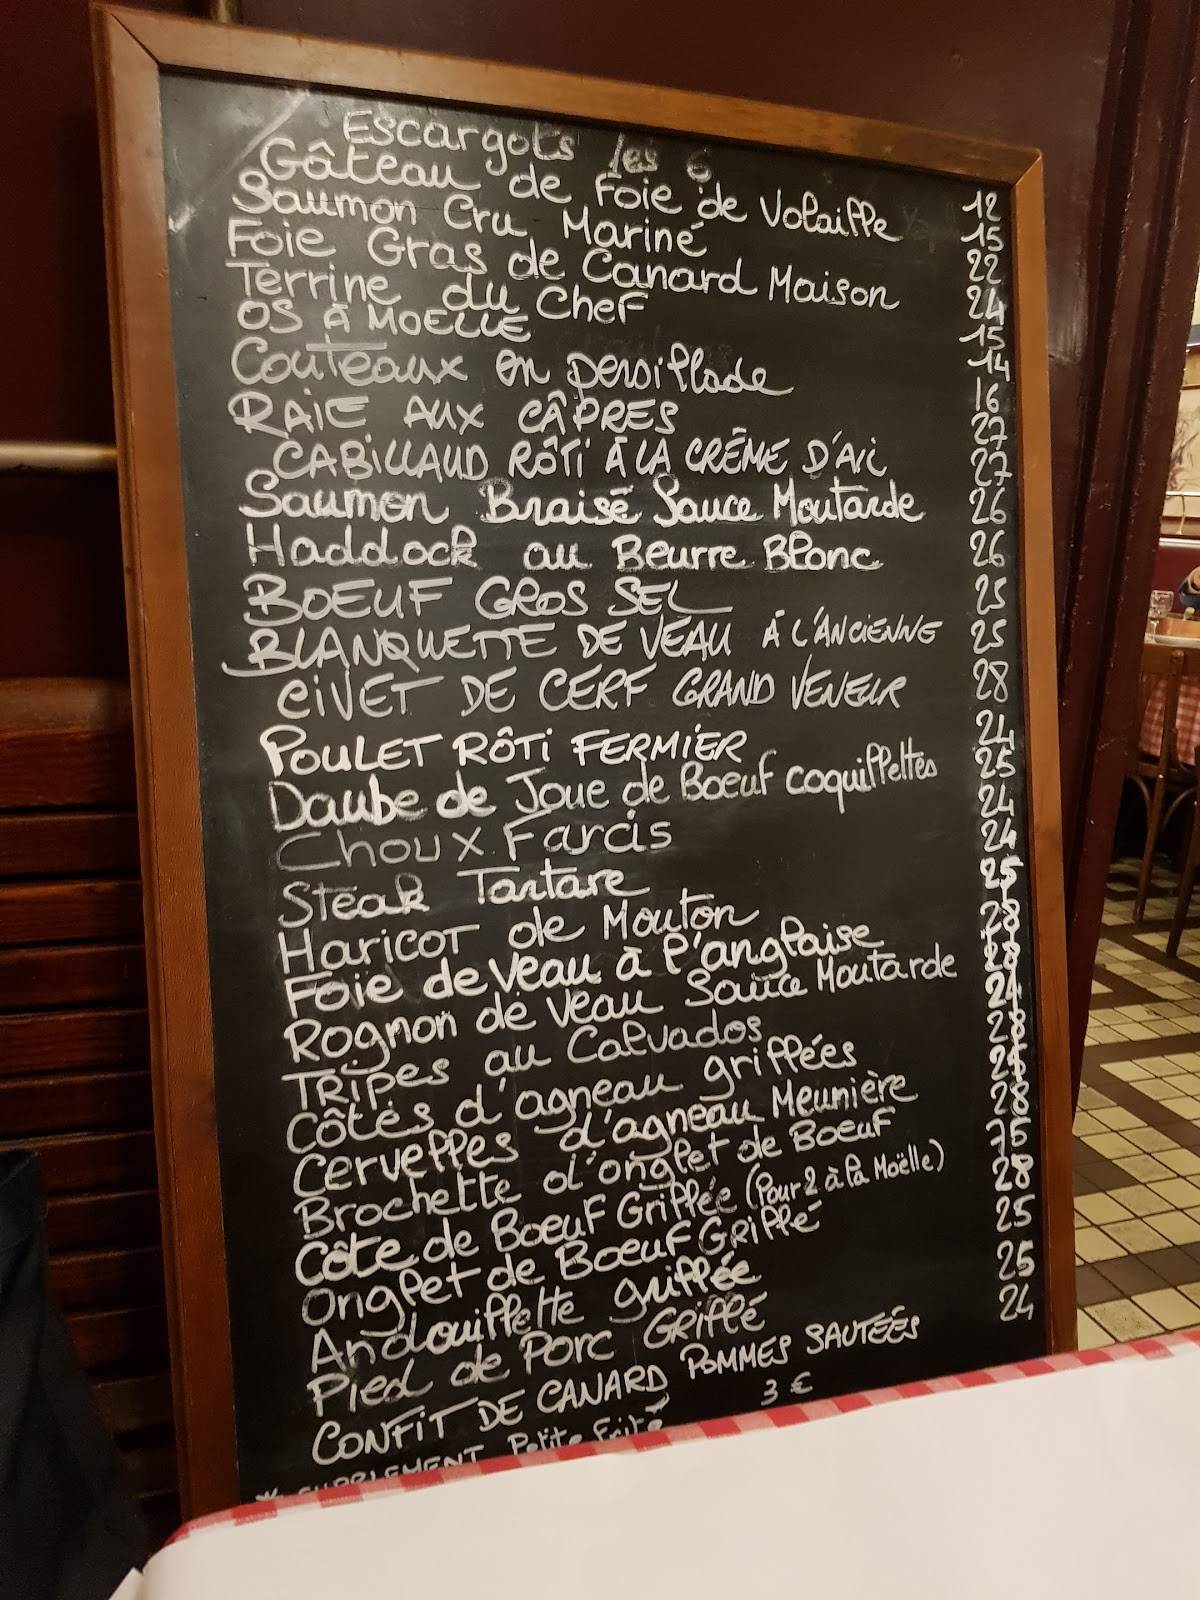 Escargots les 6 12
Gâteau de Foie de Volaille 15
Saumon Cru Mariné 22
Foie Gras de Canard Maison 24
Terrine du Chef 15
OS À MOELLE 14
Couteaux en persillade 16
RAIE AUX CÂPRES 27
CABILLAUD RÔTI À LA CRÊME D'AIL 27
Saumon Braisé Sauce Moutarde 26
Haddock au Beurre Blanc 26
BOEUF GROS SEL 25
BLANQUETTE DE VEAU À L'ANCIENNE 25
CIVET DE CERF GRAND VENEUR 28
POULET RÔTI FERMIER 24
Daube de Joue de Boeuf coquillettes 25
Choux Farcis 24
Steak Tartare 24
Haricot de Mouton 25
Foie de veau à l'anglaise 28
Rognon de veau Sauce Moutarde 28
Tripes au Calvados 24
Côtes d'agneau grillées 28
Cervelles d'agneau Meunière
Brochette d'onglet de Boeuf 28
Côte de Boeuf Grillée (Pour 2 à la Moëlle) 75
Onglet de Boeuf Grillé 28
Andouillette grillée 25
Pied de Porc Grillé 25
CONFIT DE CANARD POMMES SAUTÉÉS 24
* SUPPLEMENT Petite Frité 3 €